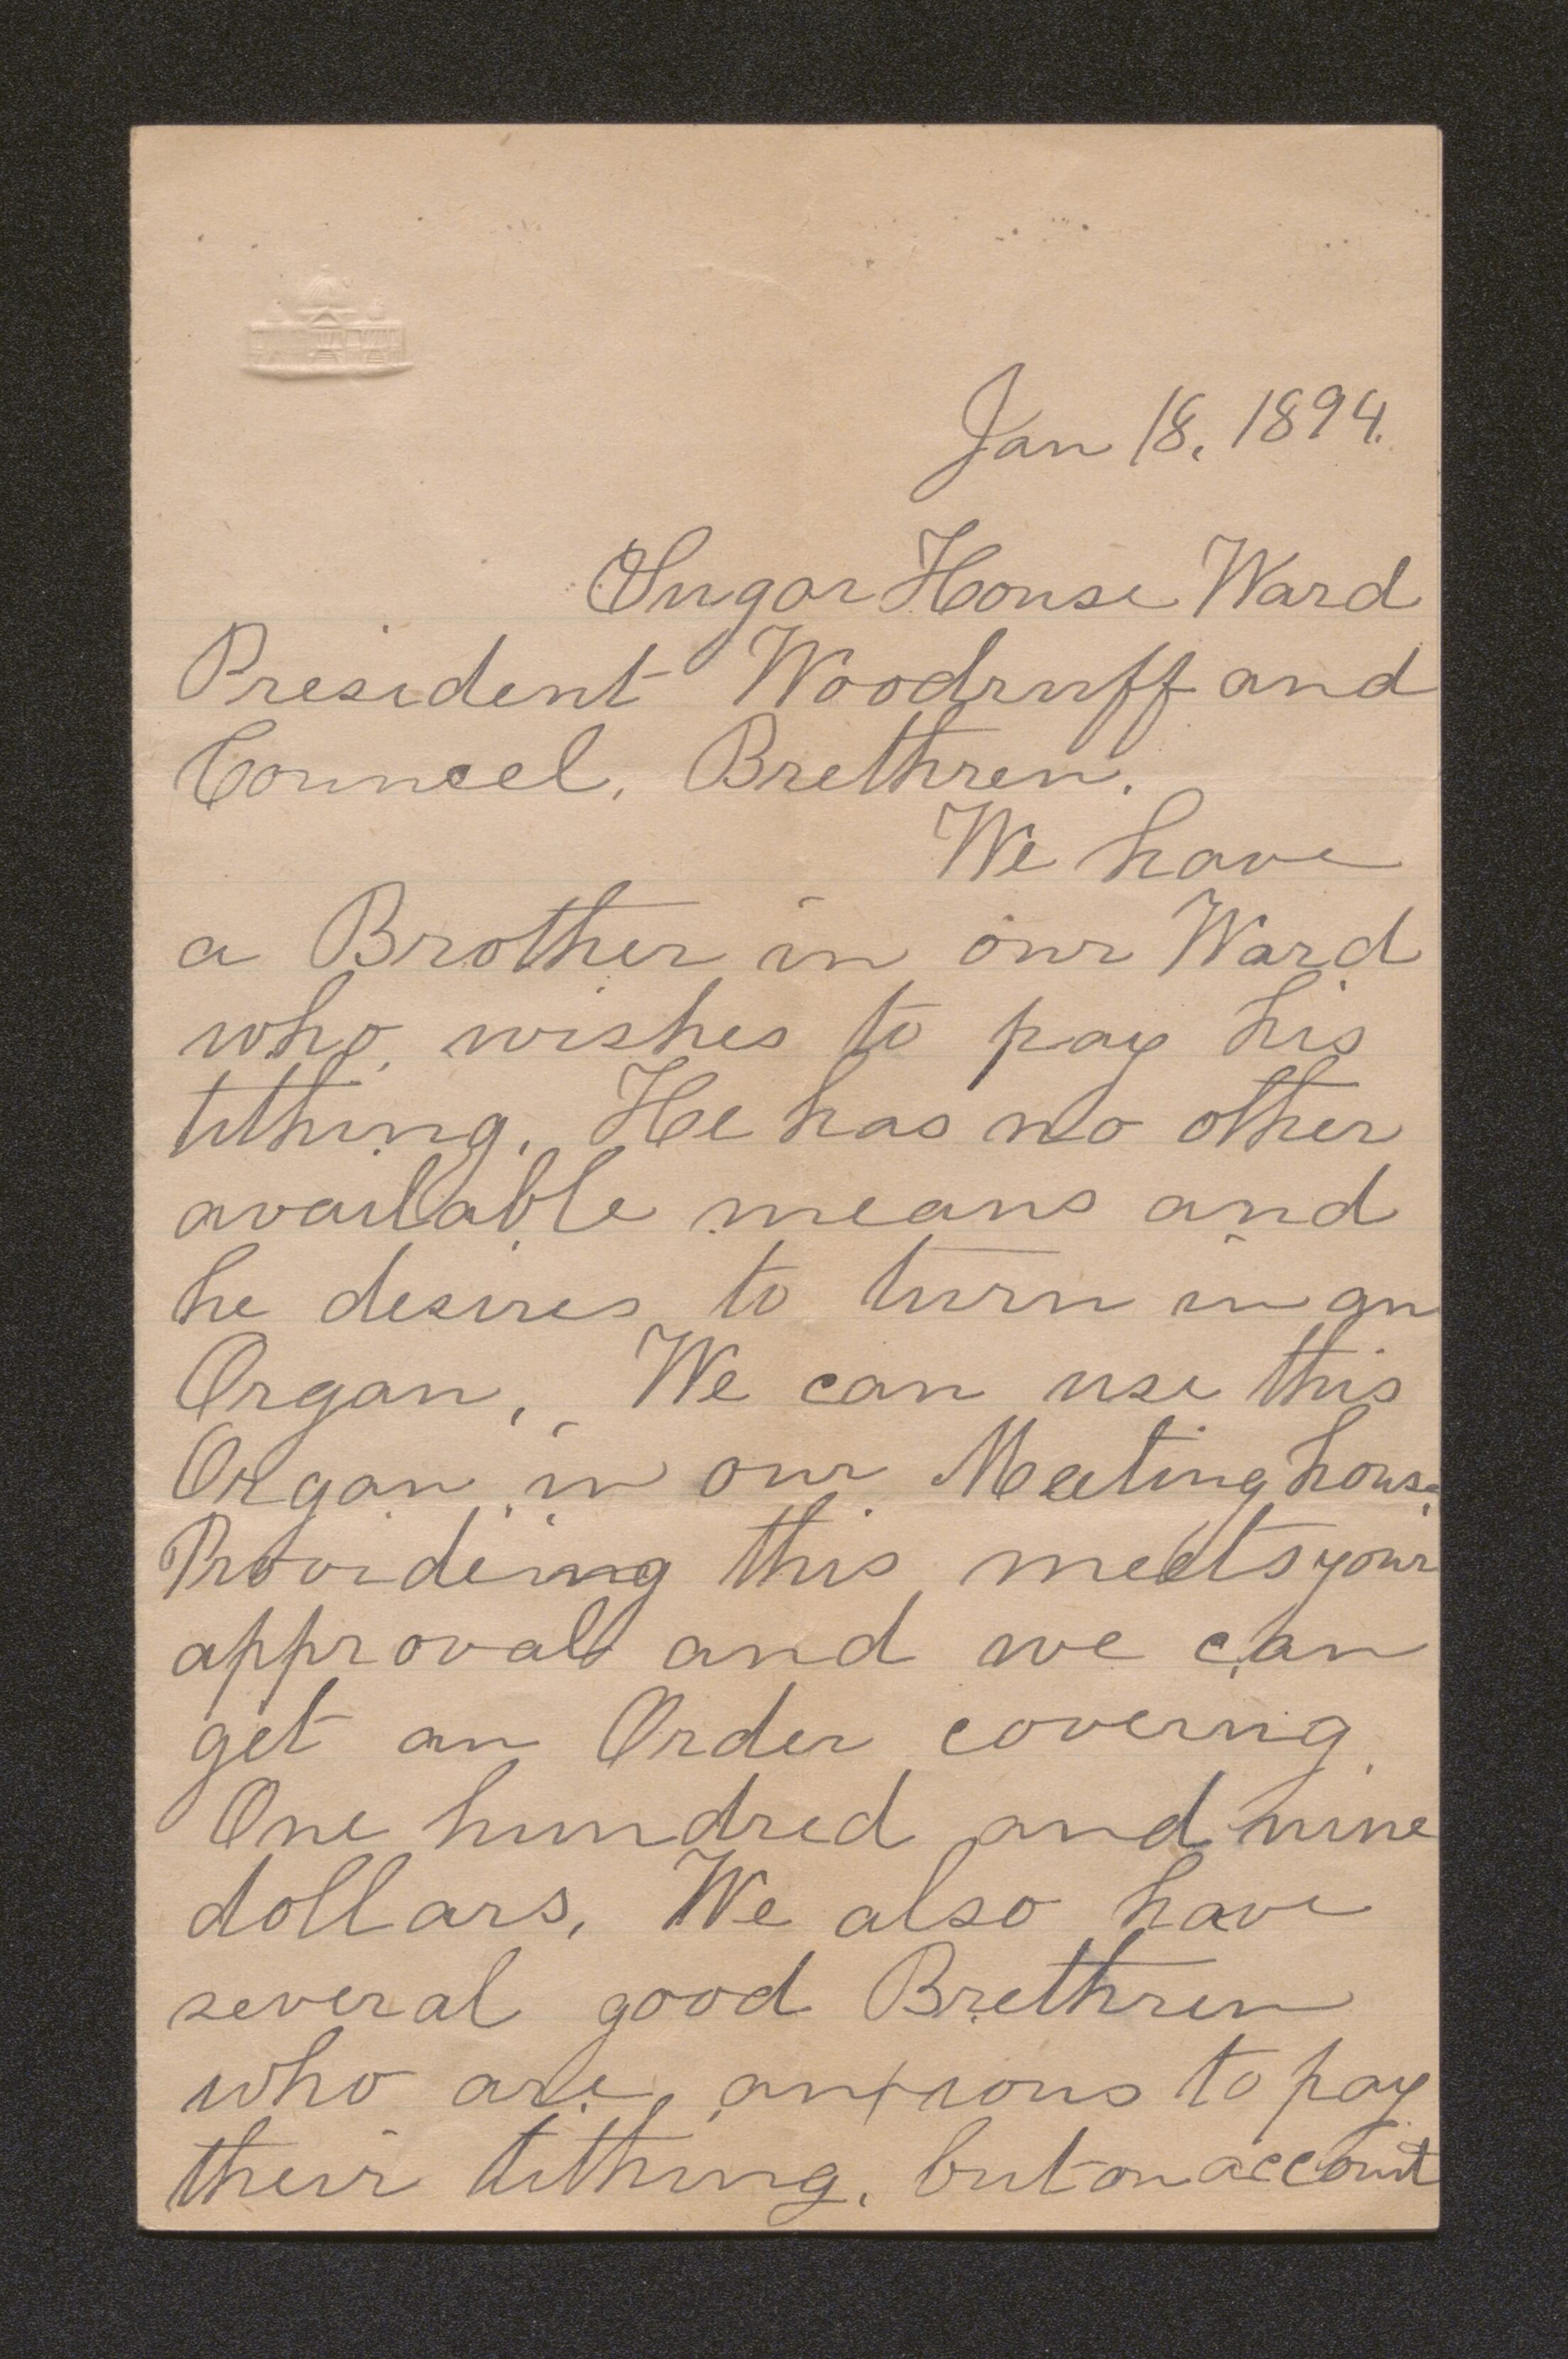 Jan 18, 1894.
Sugar House Ward
President Woodruff and
Councel, Brethren.
We have
a Brother in our Ward
who wishes to pay his
tithing. He has no other
available means and
he desires to turn in an
Organ, We can use this
Organ in our Meeting house
Provideing this meets your
approval and we can
get an Order covering
One hundred and nine
dollars, We also have
several good Brethren
who are anxious to pay
their tithing, but on account